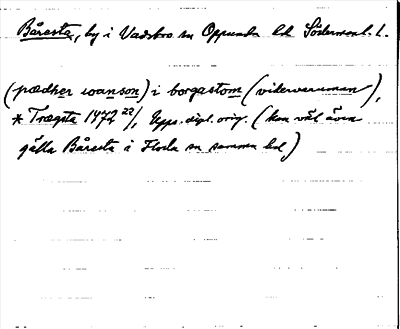 Båresta, by i Vadsbro sn Oppunda hd Södermanl. l.
(pædher swanson) i borgastom (vidervaruman),
* Trægsta 1472 22/, Upps. dipl. orig. (kan väl även
gälla Båresta i Floda sn samma hd)